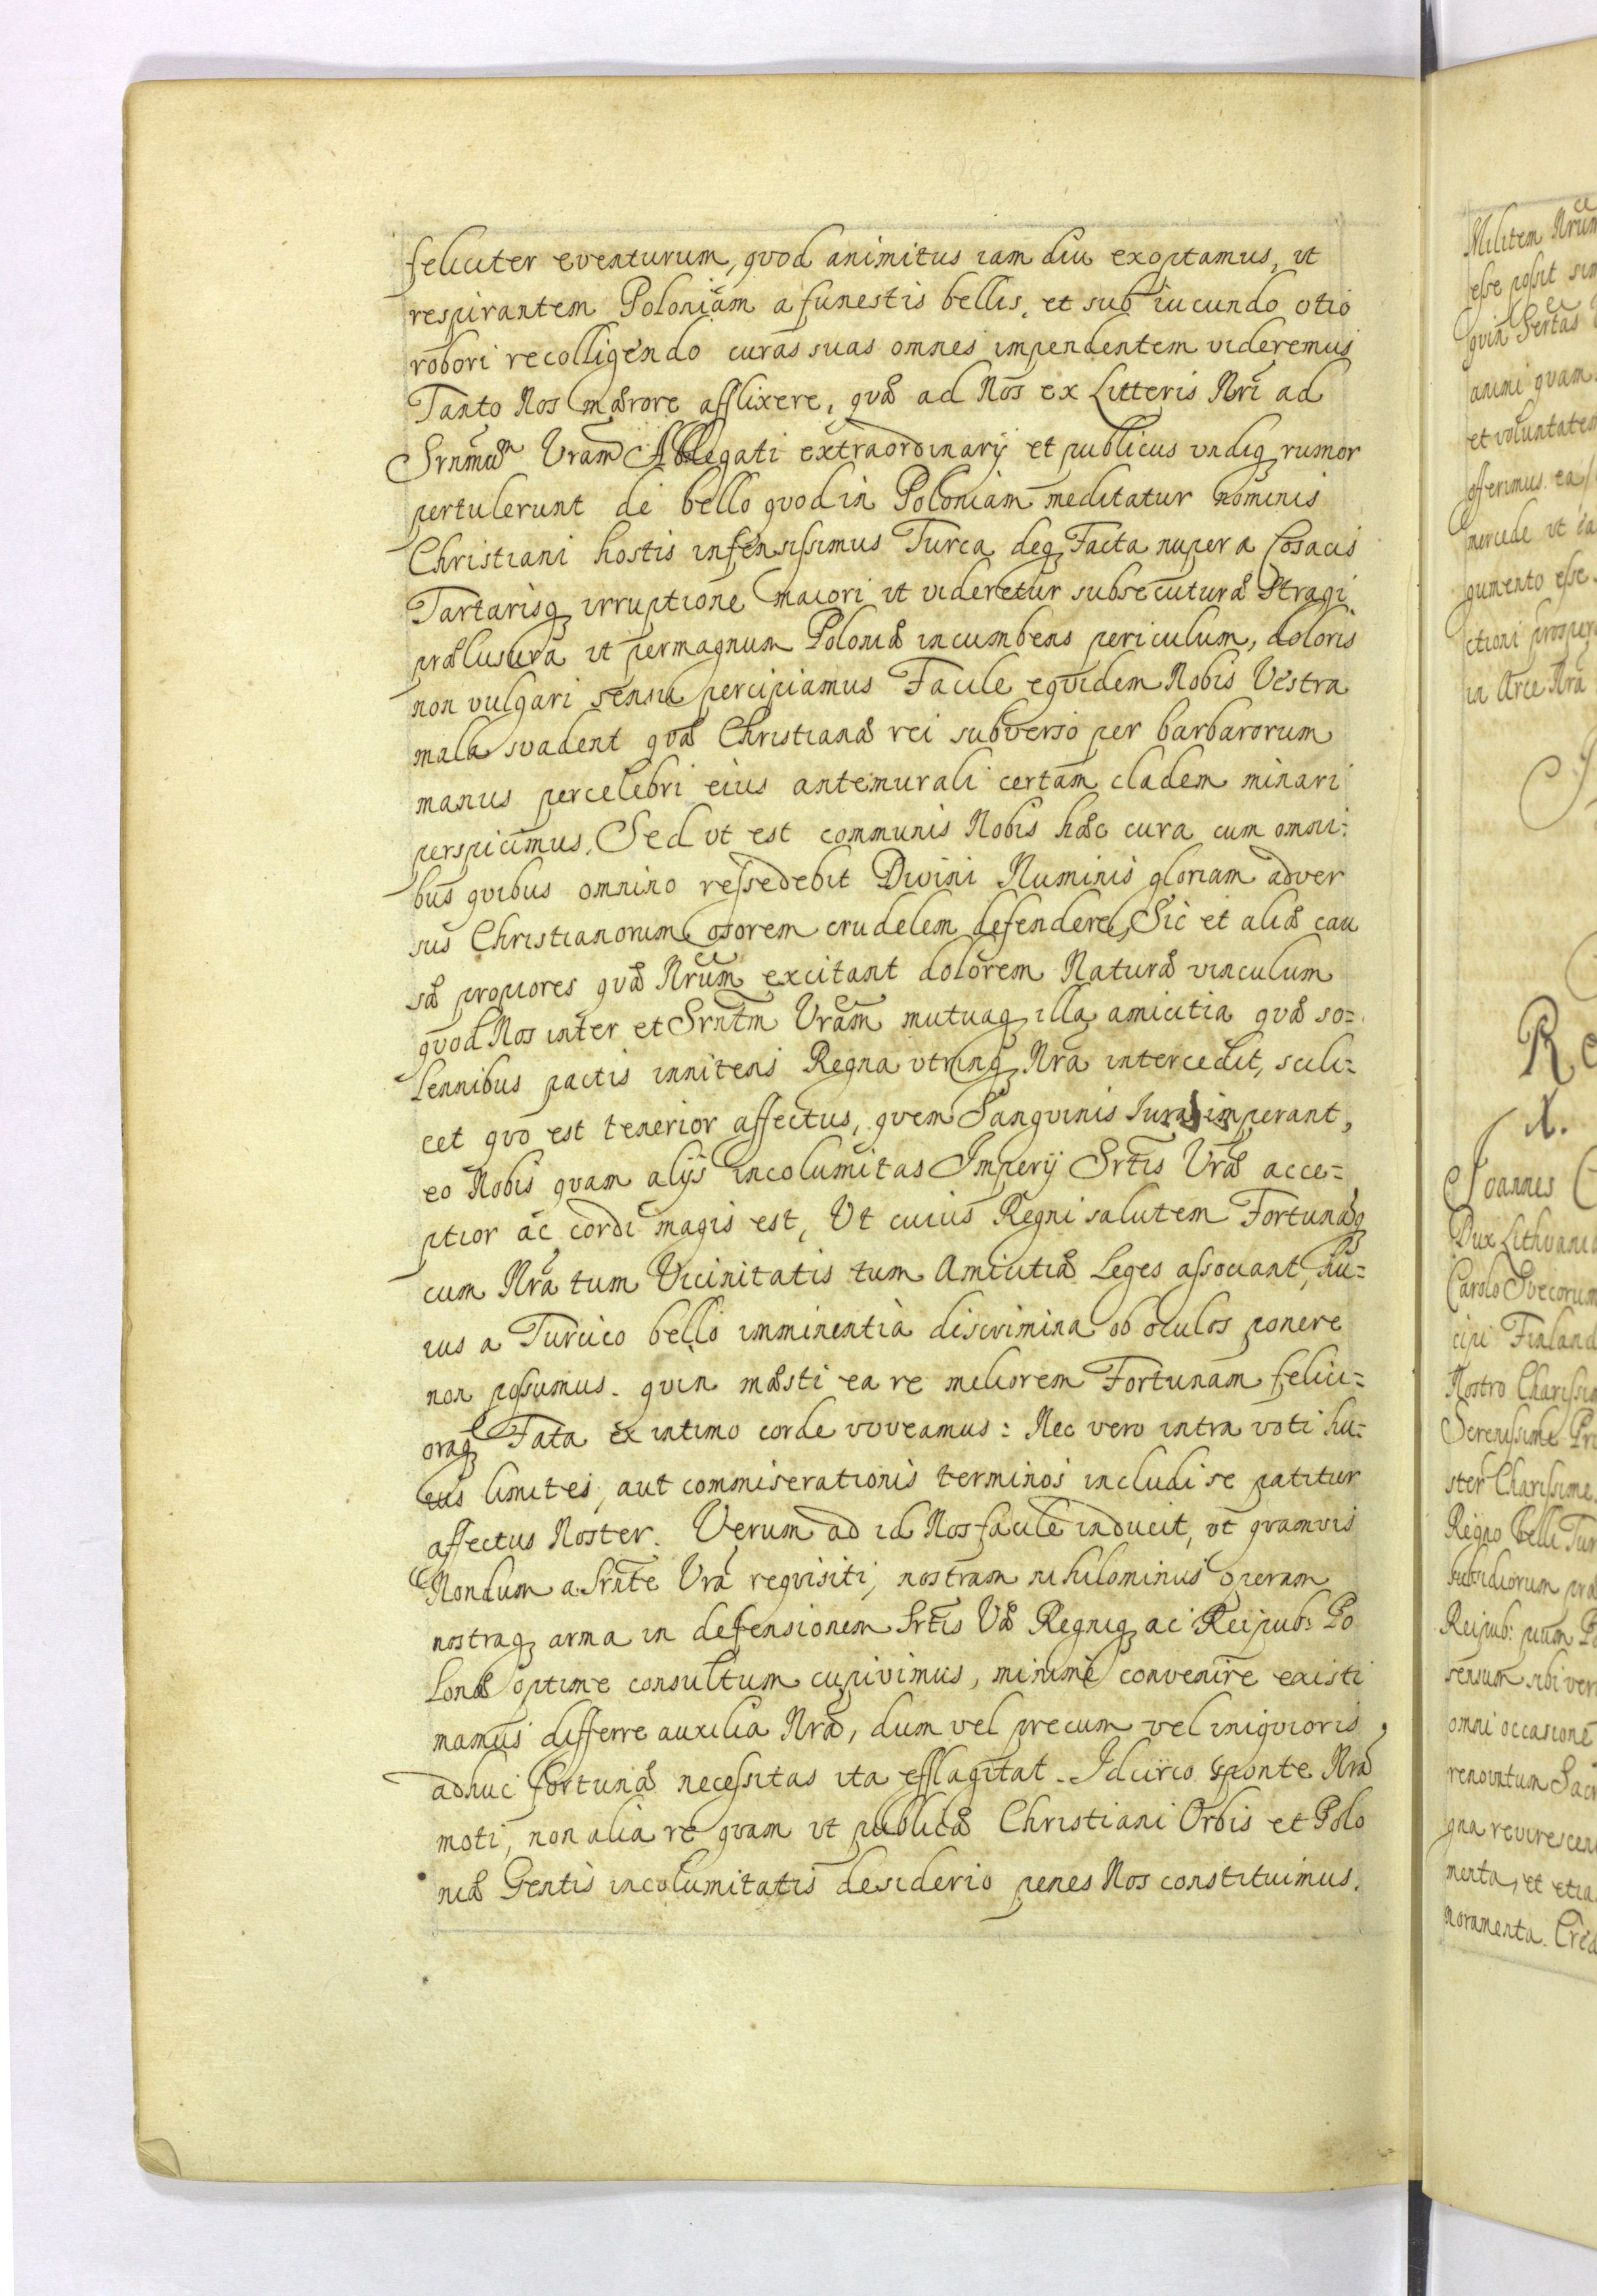 feliciter eventurum, qvod animitus iam diu exoptamus, ut
respirantem Poloniam a funestis bellis, et sub iucundo otio
robori recolligendo curas suas omnes impendentem videremus
Tanto Nos mærore afflixere, qvæ ad Nos ex Litteris Nri ad
Srnmam Vram Ablegati extraordinarij et publicus undiq rumor
pertulerunt de bello qvod in Poloniam meditatur nominis
Christiani hostis infensissimus Turca deq Facta nuper a Cosacis
Tartarisq irruptione maiori ut videretur subsecuturæ stragi
prælusura ut permagnum Poloniæ incumbens periculum, doloris
non vulgari sensu percipiamus Facile eqvidem Nobis Vestra
mala svadent qvæ Christianæ rei subversio per barbarorum
manus percelebri eius antemurali certam cladem minari
perspicimus. Sed ut est communis Nobis hæc cura cum omni=
bus qvibus omnino ressedebit Divini Numinis gloriam adver
sus Christianorum osorem crudelem defendere, Sic et aliæ cau
sæ propiores qvæ Nrum excitant dolorem Naturæ vinculum
qvod Nos inter et Srntm Vram mutuaq illa amicitia qvæ so=
lennibus pactis innitens Regna utrinq Nra intercedit, scili=
cet qvo est tenerior affectus, qvem Sangvinis Iura imperant,
eo Nobis qvam alijs incolumitas Imperij Srtis Vræ acce=
ptior ac cordi magis est, Ut cuius Regni salutem Fortunaq
cum Nra tum Vicinitatis tum Amicitiæ Leges associant, hu=
ius a Turcico bello imminentia discrimina ob oculos ponere
non possumus. qvin mæsti ea re meliorem Fortunam felici=
oraq Fata ex intimo corde voveamus: Nec vero intra voti hu=
ius limites, aut commiserationis terminos includi se patitur
affectus Noster. Verum ad id Nos facile inducit, ut qvamvis
Nondum a Srnte Vra reqvisiti, nostram nihilominus operam
nostraq arma in defensionem Srtis Væ Regniq ac Reipub: Po
lonæ optime consultum cupivimus, minime convenire existi
mamus differre auxilia Nra, dum vel precum vel iniqvioris
adhuc fortunæ necessitas ita efflagitat. Idcirco sponte Nra
moti, non alia re qvam ut publicæ Christiani Orbis et Polo
niæ Gentis incolumitatis desiderio penes Nos constituimus.
Militem Nrum
esse possit
animi qvam
et voluntatem
offerimus ea
mercede ut
gumento esse
ctioni
in Arce Nra
Joannes
Dux Lithvani
Carolo Svecorum
cipi Finland
Nostro Charissi
Serenissime Pri
ster Charissime
Regno belli Tur
subsidiorum præ
Reipub:
sensum sibi
omni occasione
gna
menta, et etia